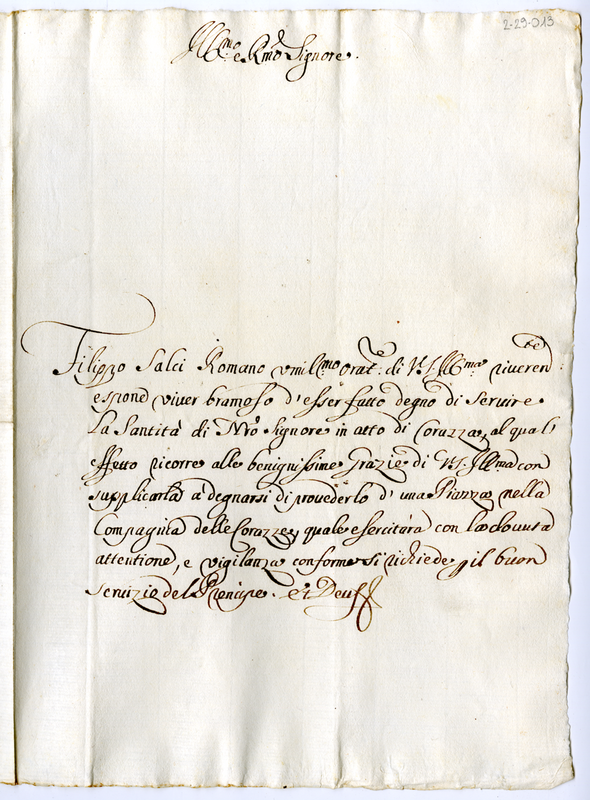 2-29-013
Ill.mo e Rmo Signore.
Filippo Salci Romano vmil.mo Orat.re di V.S. Ill.ma riverend.te
espone viver bramoso d'esser fatto degno di Servire
La Santità di Nrõ Signore in atto di Corazza, al qual'
effetto ricorre alle benignissime grazie di V.S. Ill.ma con
supplicarla à degnarsi di provederlo d'una Piazza nella
Compagnia delle Corazze, quale esercitarà con la dovuta
attentione, e vigilanza conforme si richiede p il buon
servizio del Prencipe. et Deus